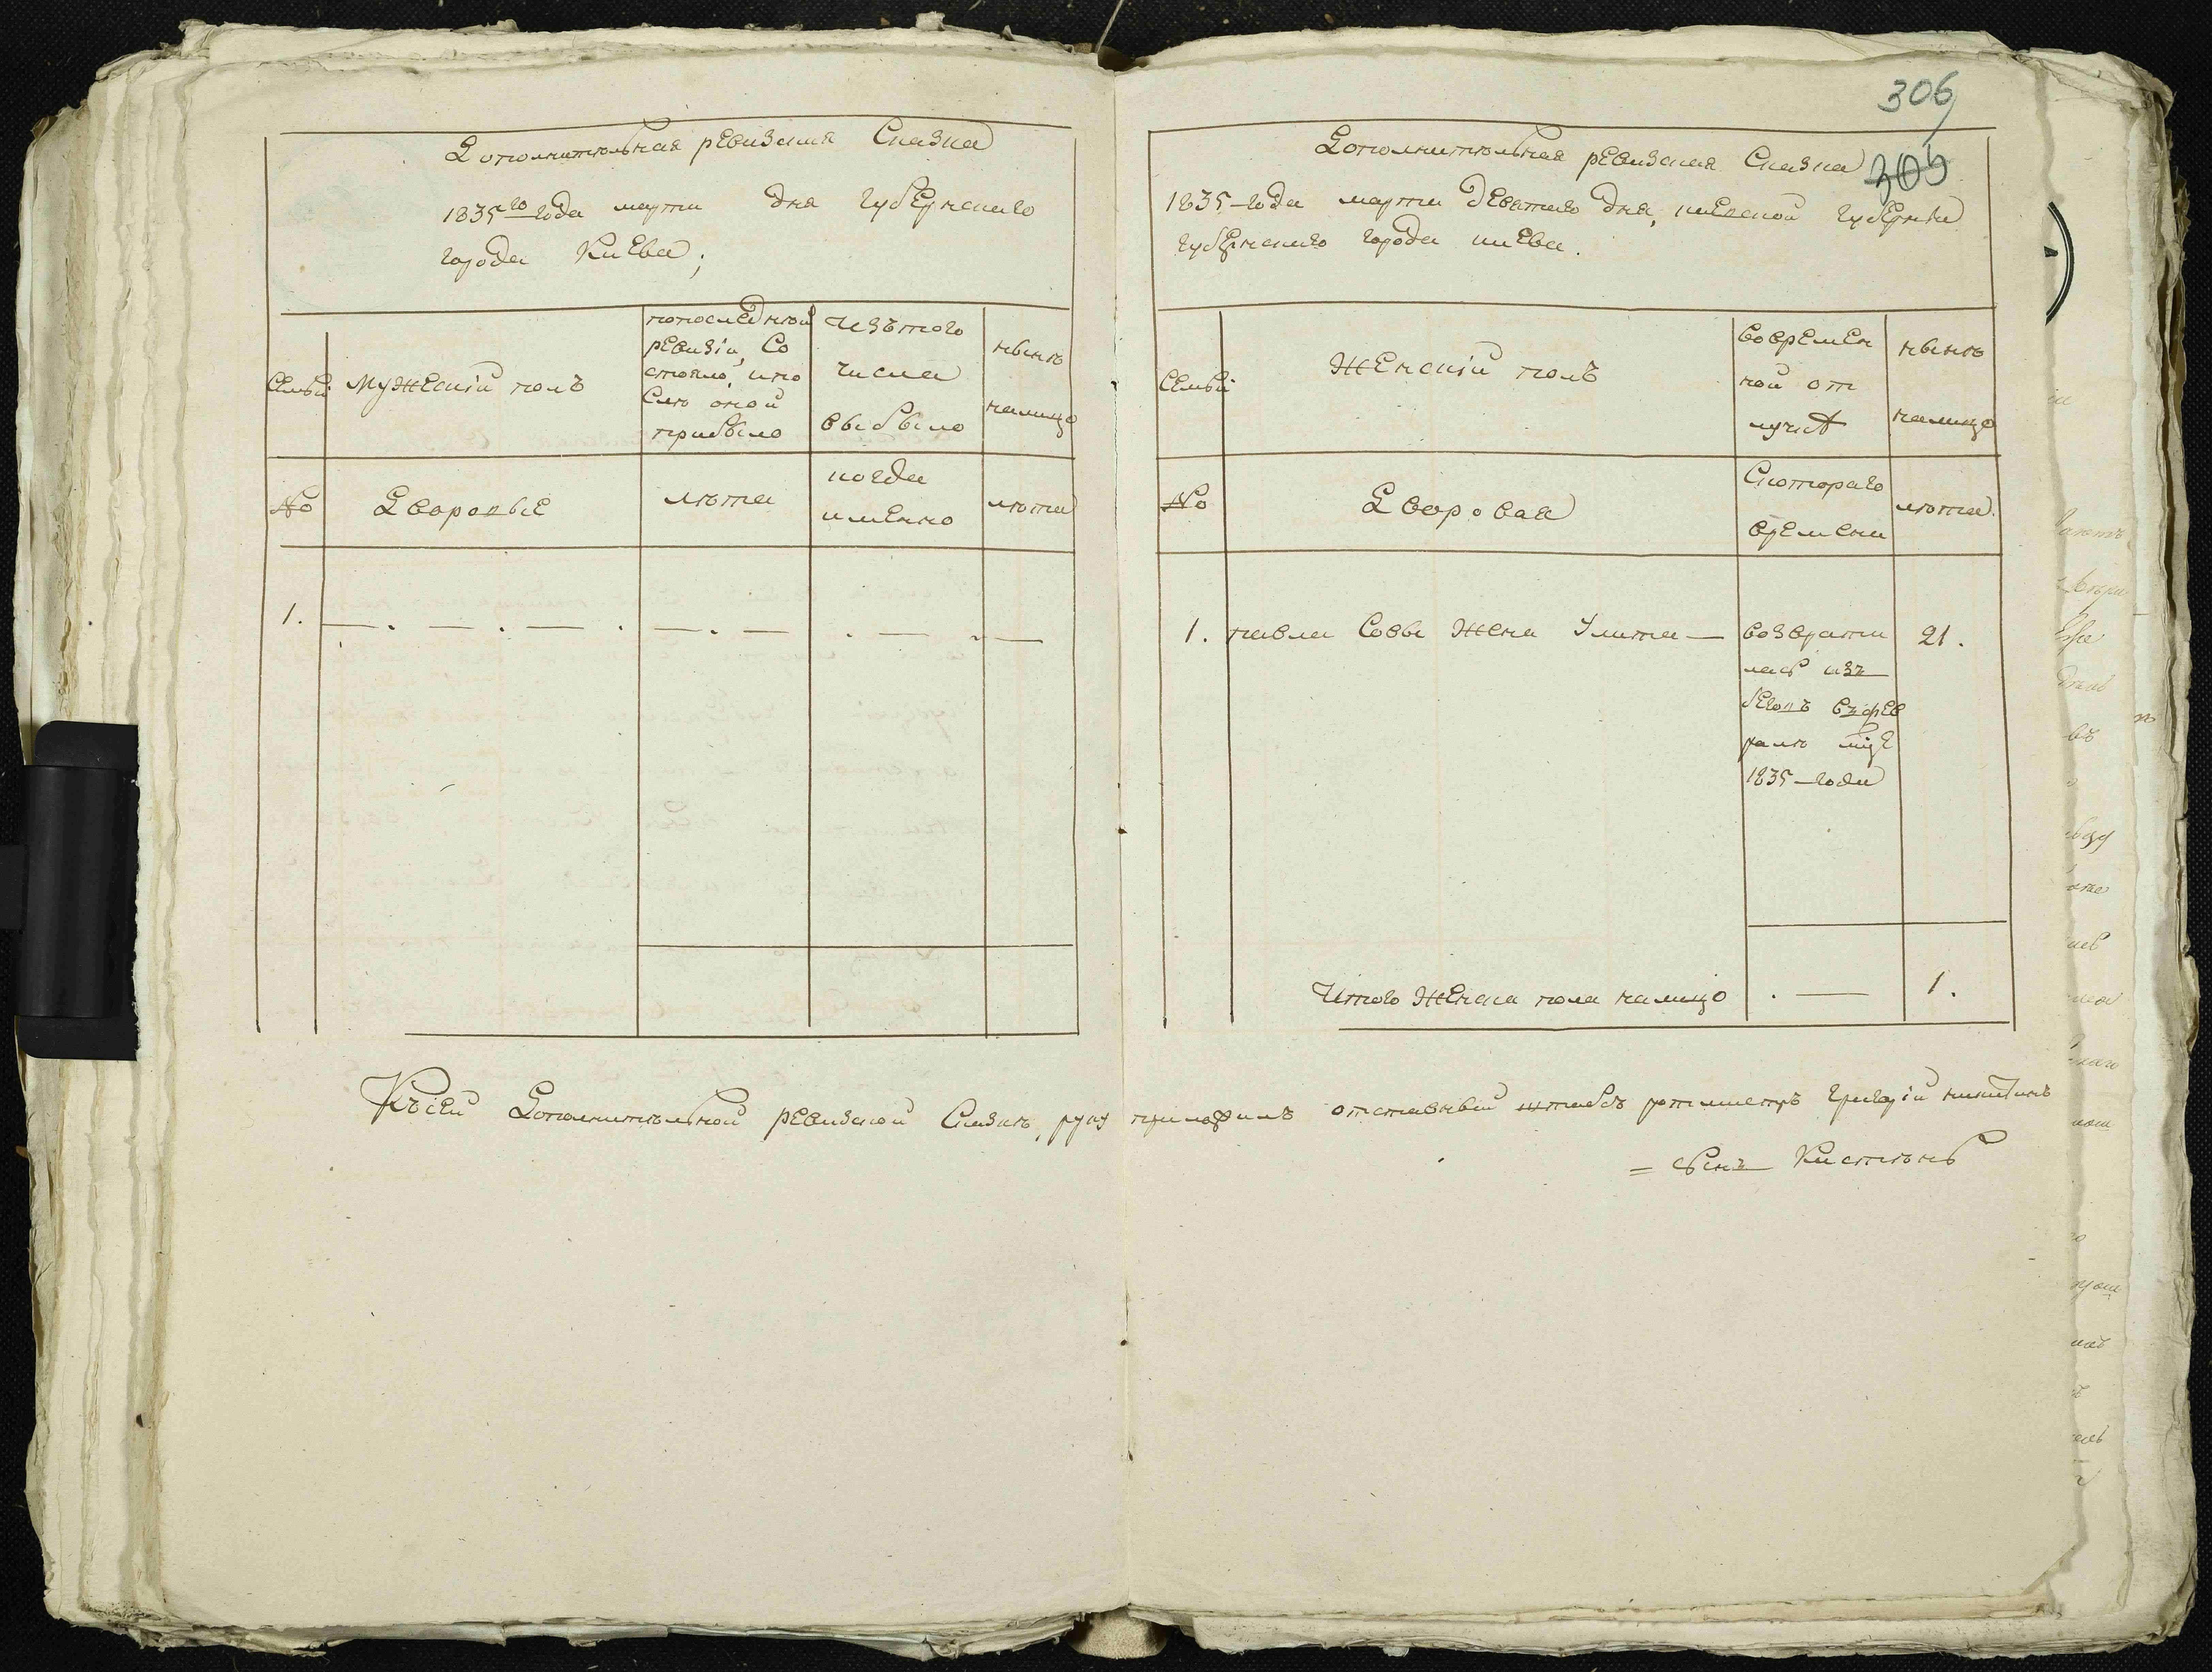 306
305
Дополнительная ревизкая Сказка
1835го года марта дня губернскаго
города Киева;
Семьи
Мужескій полъ
попоследней
ревизіи, Со
стояло, ипо
сле оной
прибыло
Изътого
числа
выбыло
ныне
налицо
No
Дворовые
лета
когда
именно
лета
1.
Дополнительная ревизкая Сказка
1835 года марта девятаго дня, киевской губерніи
губернскаго города киева.
Семьи
Женскій полъ
вовремен
ной от
лучке
ныне
налицо
No
Дворовая
Скотораго
времени
лета
1. павла Саввы Жена Улита — возврати 21.
лась изъ
беговъ въфев
рале мце
1835 года
Итого Женска пола налицо . — 1.
Къ сей Дополнительной ревизкой Сказке, руку приложилъ отставный штабсъ ротмистръ Григорій никитинъ
= сынъ